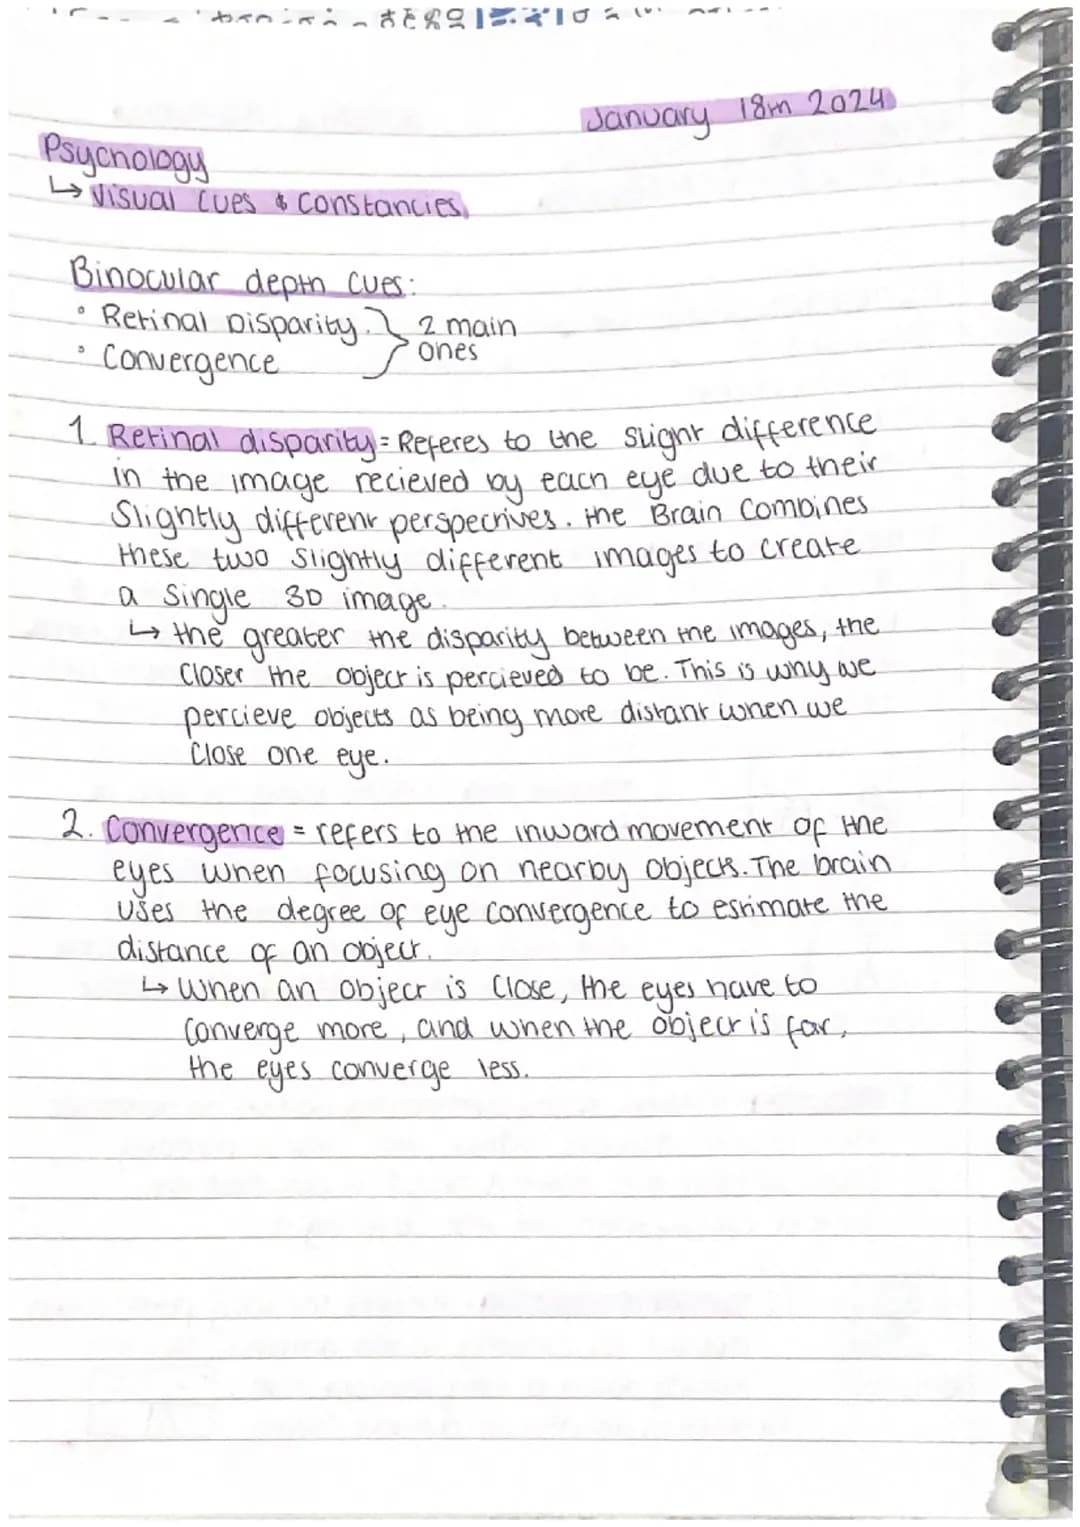 January 18th 2024
Psychology
↳ Visual Cues & Constancies
Binocular depth cues:
• Retinal Disparity } 2 main
• Convergence ones
1. Retinal disparity = Referes to the slight difference
in the image recieved by each eye due to their
Slightly different perspectives. the Brain Combines
these two Slightly different images to create
a Single 3D image.
↳ the greater the disparity between the images, the
Closer the object is percieved to be. This is why we
percieve objects as being more distant when we
Close one eye.
2. Convergence = refers to the inward movement of the
eyes when focusing on nearby objects. The brain
uses the degree of eye convergence to estimate the
distance of an object.
↳ When an object is Close, the eyes have to
Converge more, and when the object is far,
the eyes converge less.